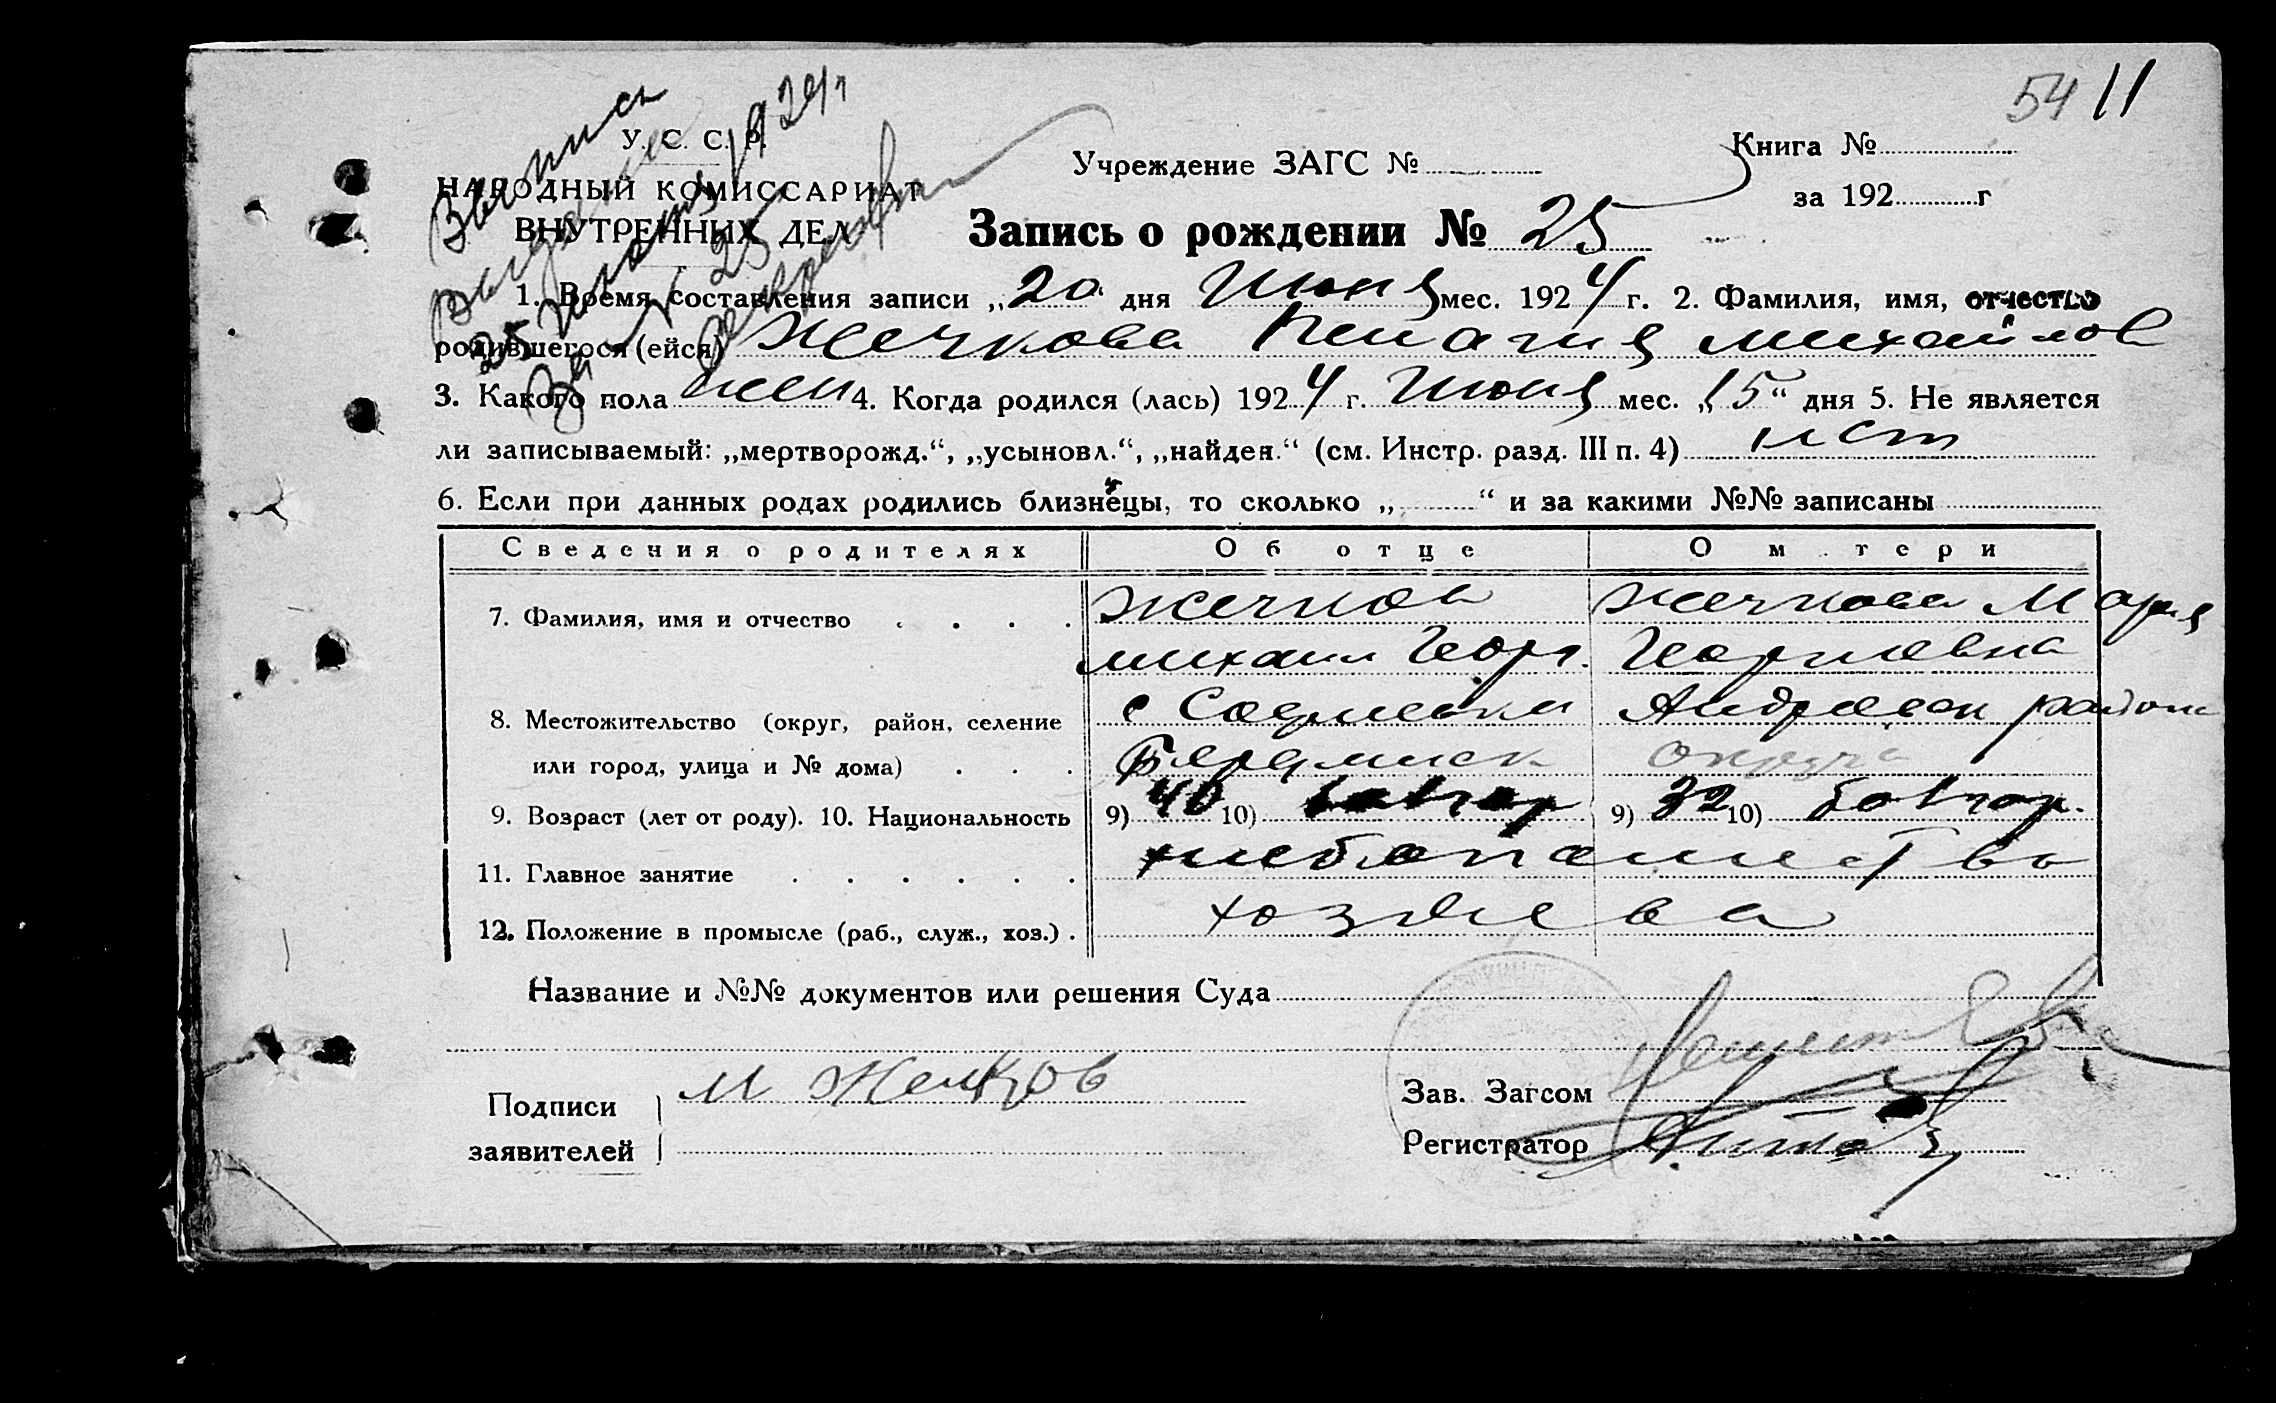 54 11
Выпись
выдана
25 июня 1924 г.
За № 25
У. С. С. Р.
НАРОДНЫЙ КОМИССАРИАТ
ВНУТРЕННЫХ ДЕЛ
Учреждение ЗАГС №
Книга №
за 192 г
Запись о рождении № 25
1. Время составления записи „20“ дня Июня мес. 1924 г. 2. Фамилия, имя, отчество
родившегося (ейся) Жечкова Пелагия Михайлов
3. Какого пола жен 4. Когда родился (лась) 1924 г. Июня мес. „15“ дня 5. Не является
ли записываемый: „мертворожд.“, „усыновл.“, „найден.“ (см. Инстр. разд. III п. 4) нет
6. Если при данных родах родились близнецы, то сколько „ “ и за какими №№ записаны
Сведения о родителях Об отце О м тери
7. Фамилия, имя и отчество Жечков Жечкова Мария
Михаил Георг. Георгиевна
8. Местожительство (округ, район, селение с Андреевск района
или город, улица и № дома) Бердянск округа
9. Возраст (лет от роду). 10. Национальность 9) 40 10) болгар 9) 32 10) болгар.
11. Главное занятие хлебопашество
12. Положение в промысле (раб., служ., хоз.) хозяева
Название и №№ документов или решения Суда
Подписи М Жечков
заявителей
Зав. Загсом
Регистратор